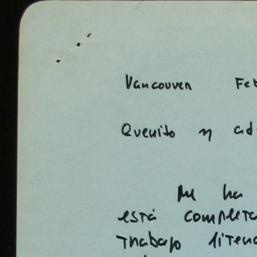 Vancouver Feb
Querido y ad
Me ha
está complet
Trabajo litera